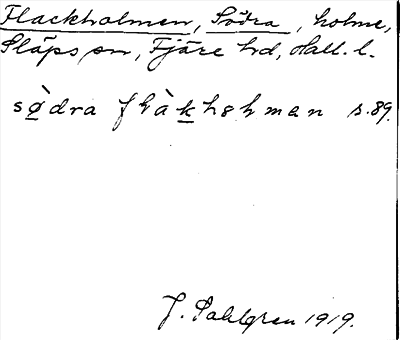 Flackholmen, Södra, holme,
Släps sn, Fjäre hd, Hall. l.
sø̀dra flàkholmen s. 89.
J. Sahlgren 1919.